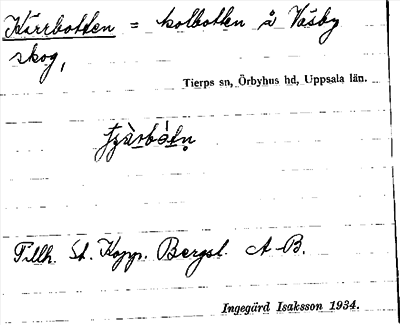 Kärrbotten = kolbotten å Väsby
skog,
Tierps sn, Örbyhus hd, Uppsala län.
Tillh. St. Kopp. Bergsl. A-B.
Ingegärd Isaksson 1934.